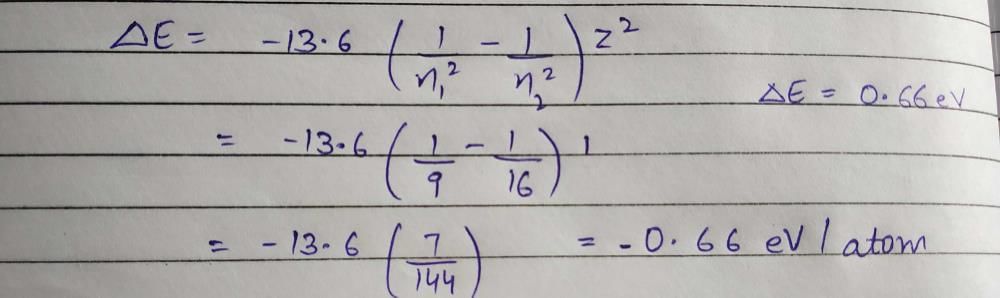 ΔE = -13.6 (1/n₁² - 1/n₂²) z²
ΔE = 0.66 eV
= -13.6 (1/9 - 1/16) 1
= -13.6 (7/144) = -0.66 eV / atom